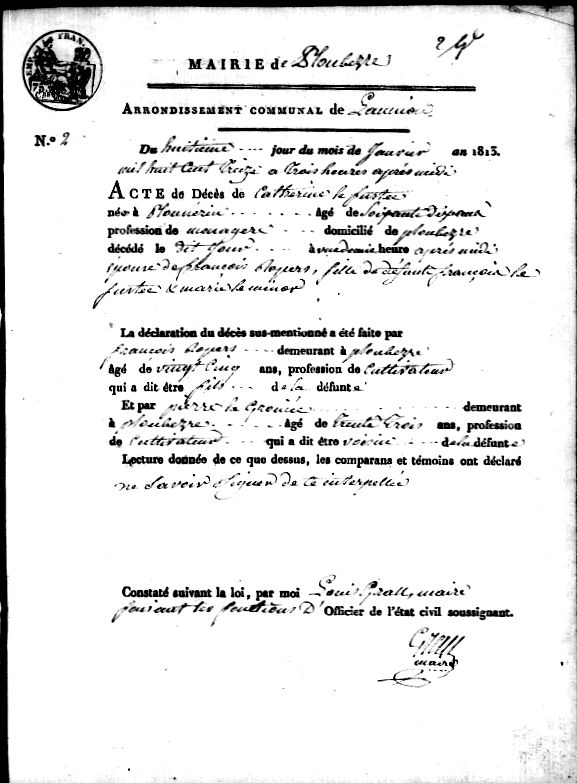 MAIRIE de Ploubezre
ARRONDISSEMENT COMMUNAL de Lannion
N.º 2
Du huitieme jour du mois de Janvier an 1813.
mil huit Cent Treize a Trois heures après midi
ACTE de Décès de Catherine le fustec
née à Plounerin âgé de Soixante
profession de menagere domicilié de ploubezre
décédé le dit Jour à une demie heure après midi
Epouse de françois Rogers, fille de défunts françois le
fustec & marie le minor
La déclaration du décès sus-mentionné a été faite par
françois Rogers demeurant à ploubezre
âgé de vingt Cinq ans, profession de Cultivateur
qui a dit être fils de la défunte
Et par pierre le demeurant
à ploubezre âgé de Trente Trois ans, profession
de Cultivateur qui a dit être voisin de la défunte
Lecture donnée de ce que dessus, les comparans et témoins ont déclaré
ne Savoir Signer de ce interpellé
Constaté suivant la loi, par moi Louis Grall, maire
faisant les fonctions D' Officier de l'état civil soussignant.
Grall
maire